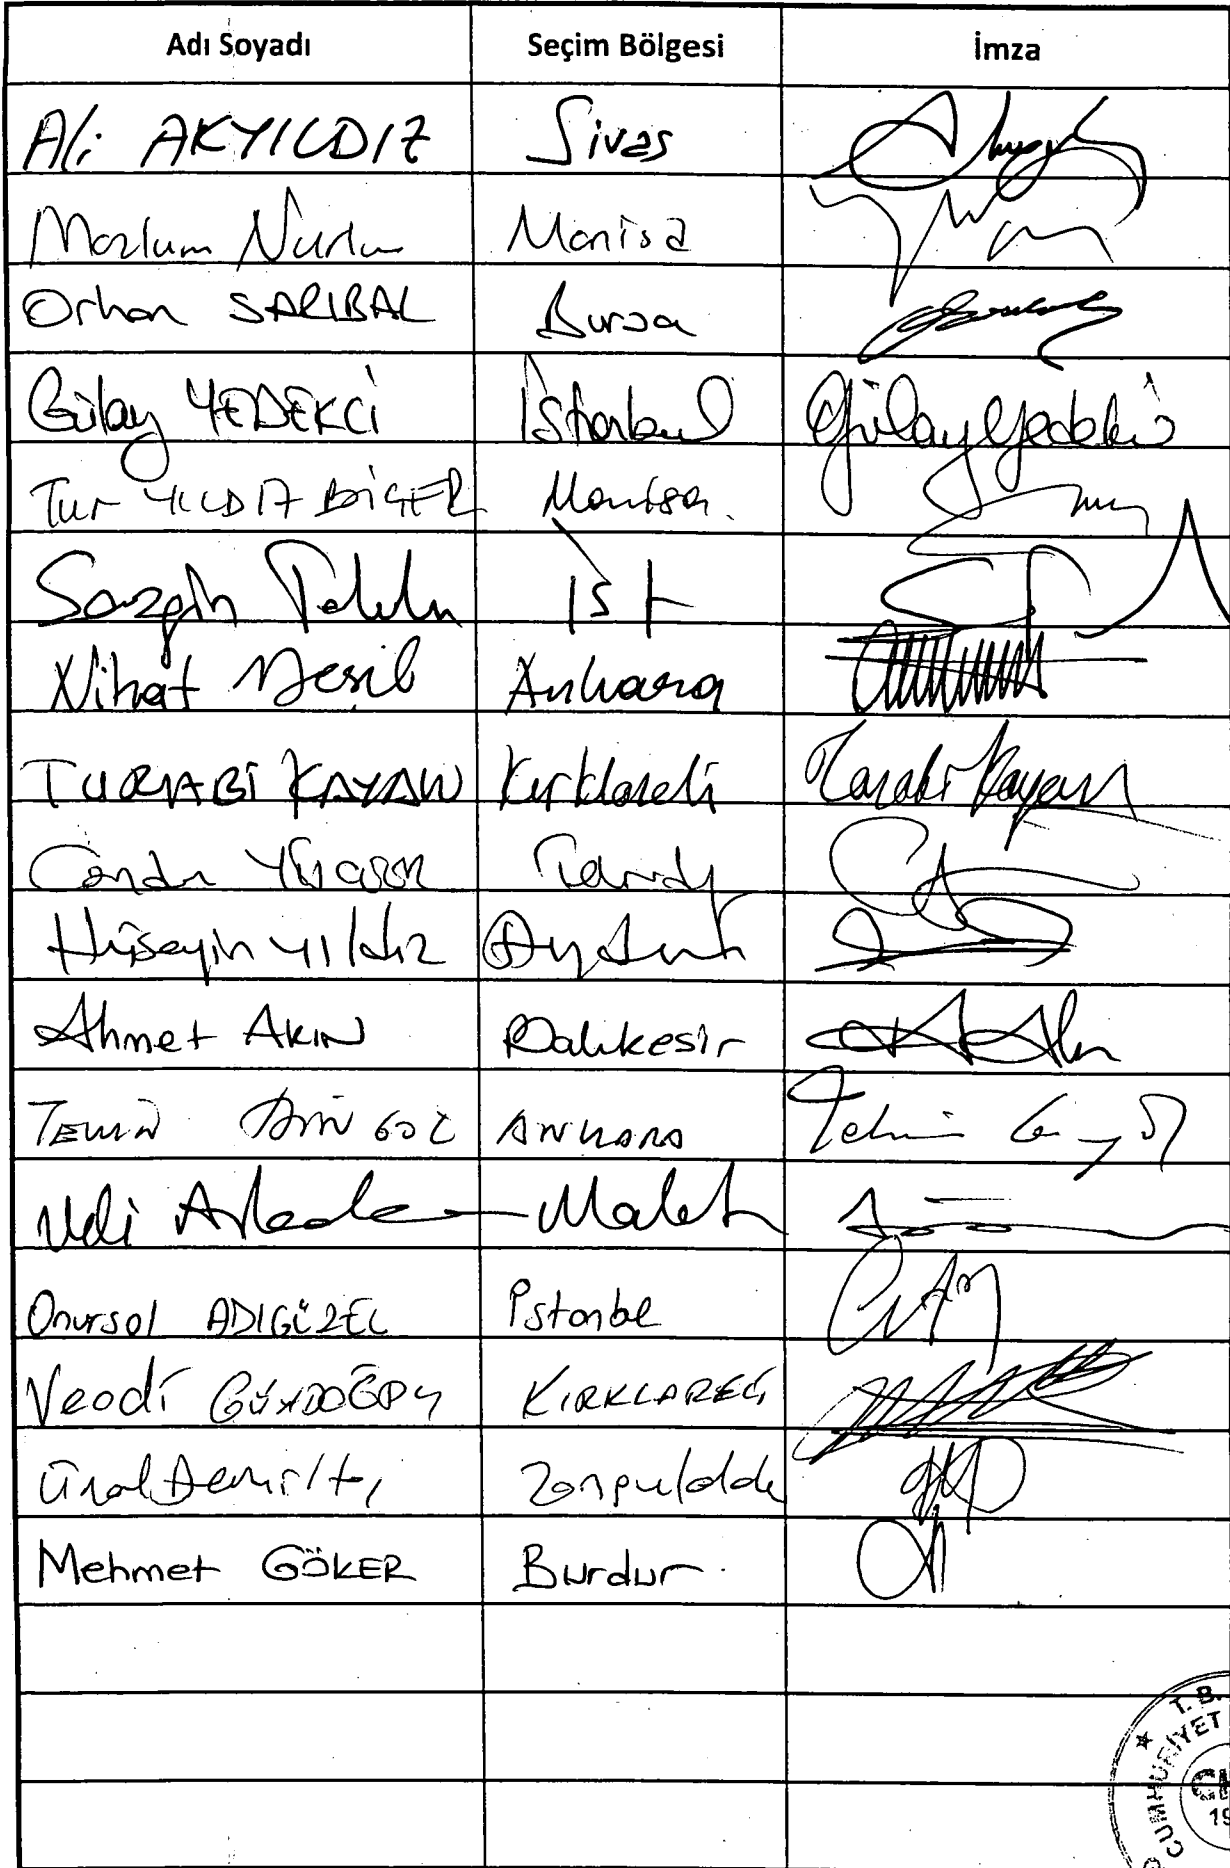 Adı Soyadı Seçim Bölgesi İmza
Ali AKYILDIZ Sivas
Mazlum Nurlu Manisa
Orhan SARIBAL Bursa
Gülay YEDEKCİ İstanbul Gülay Yedekci
Tur YILDIZ BİÇER Manisa.
Sezgin İst
Nihat Yeşil Ankara
TURABİ KAYAN Kırklareli Turabi Kayan
Candan Yüceer
Hüseyin Yıldız Aydın
Ahmet AKIN Balıkesir
TEKİN BİNGÖL ANKARA Tekin Bingöl
Veli
Onursal ADIGÜZEL İstanbul
Vecdi GÜNDOĞDU KIRKLARELİ
Ünal Demirtaş Zonguldak
Mehmet GÖKER Burdur.
T. B.
CUMHURİYET